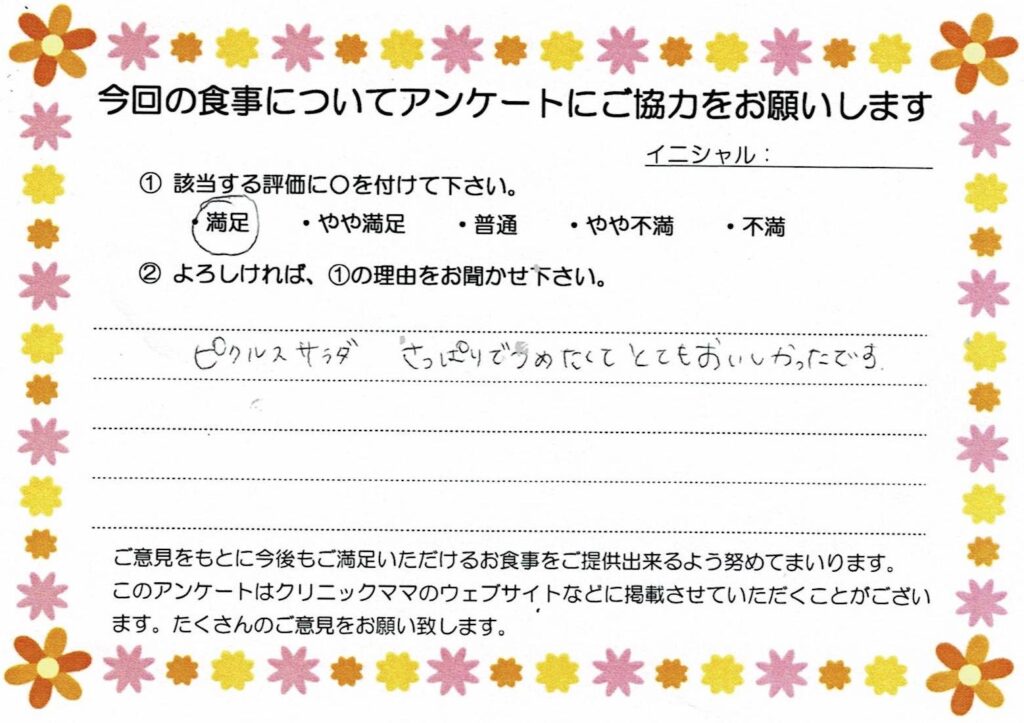 今回の食事についてアンケートにご協力をお願いします
イニシャル：
① 該当する評価に〇を付けて下さい。
・満足 ・やや満足 ・普通 ・やや不満 ・不満
② よろしければ、①の理由をお聞かせ下さい。
ピクルスサラダ さっぱりでつめたくてとてもおいしかったです.
ご意見をもとに今後もご満足いただけるお食事をご提供出来るよう努めてまいります。
このアンケートはクリニックママのウェブサイトなどに掲載させていただくことがござい
ます。たくさんのご意見をお願い致します。